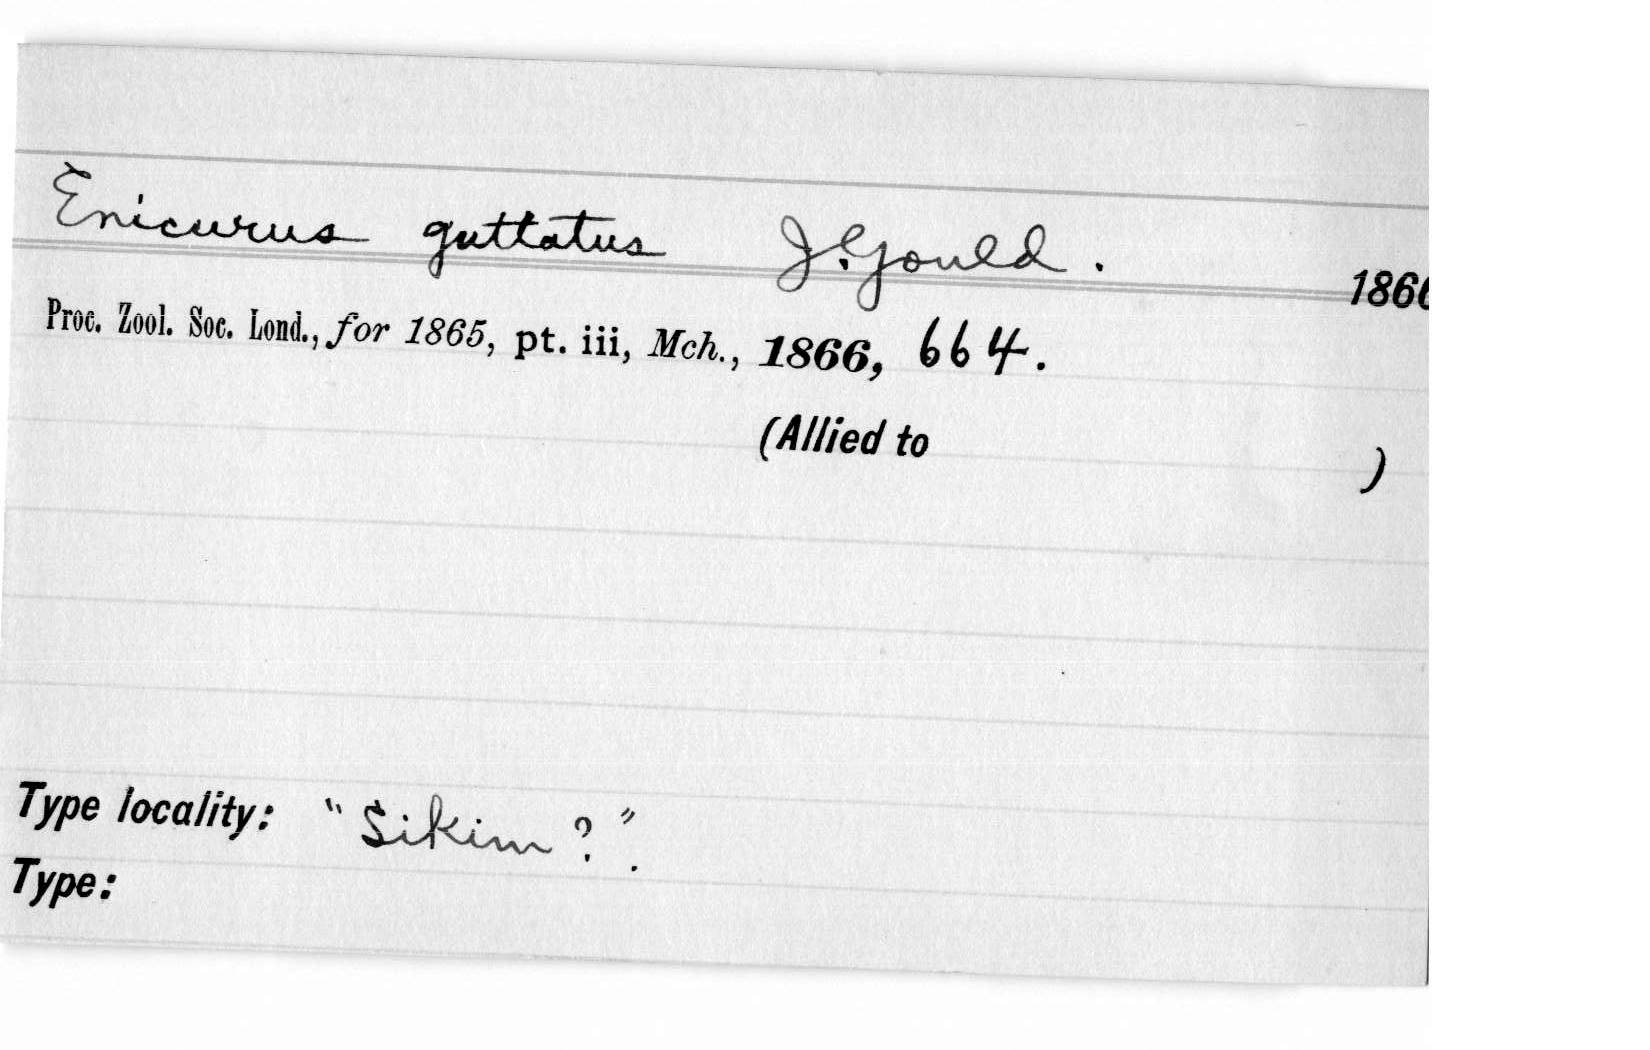 Enicurus guttatus J. Gould. 1866
Proc. Zool. Soc. Lond., for 1865, pt. iii, Mch., 1866, 664.
(Allied to )
Type locality: "Sikim?".
Type: